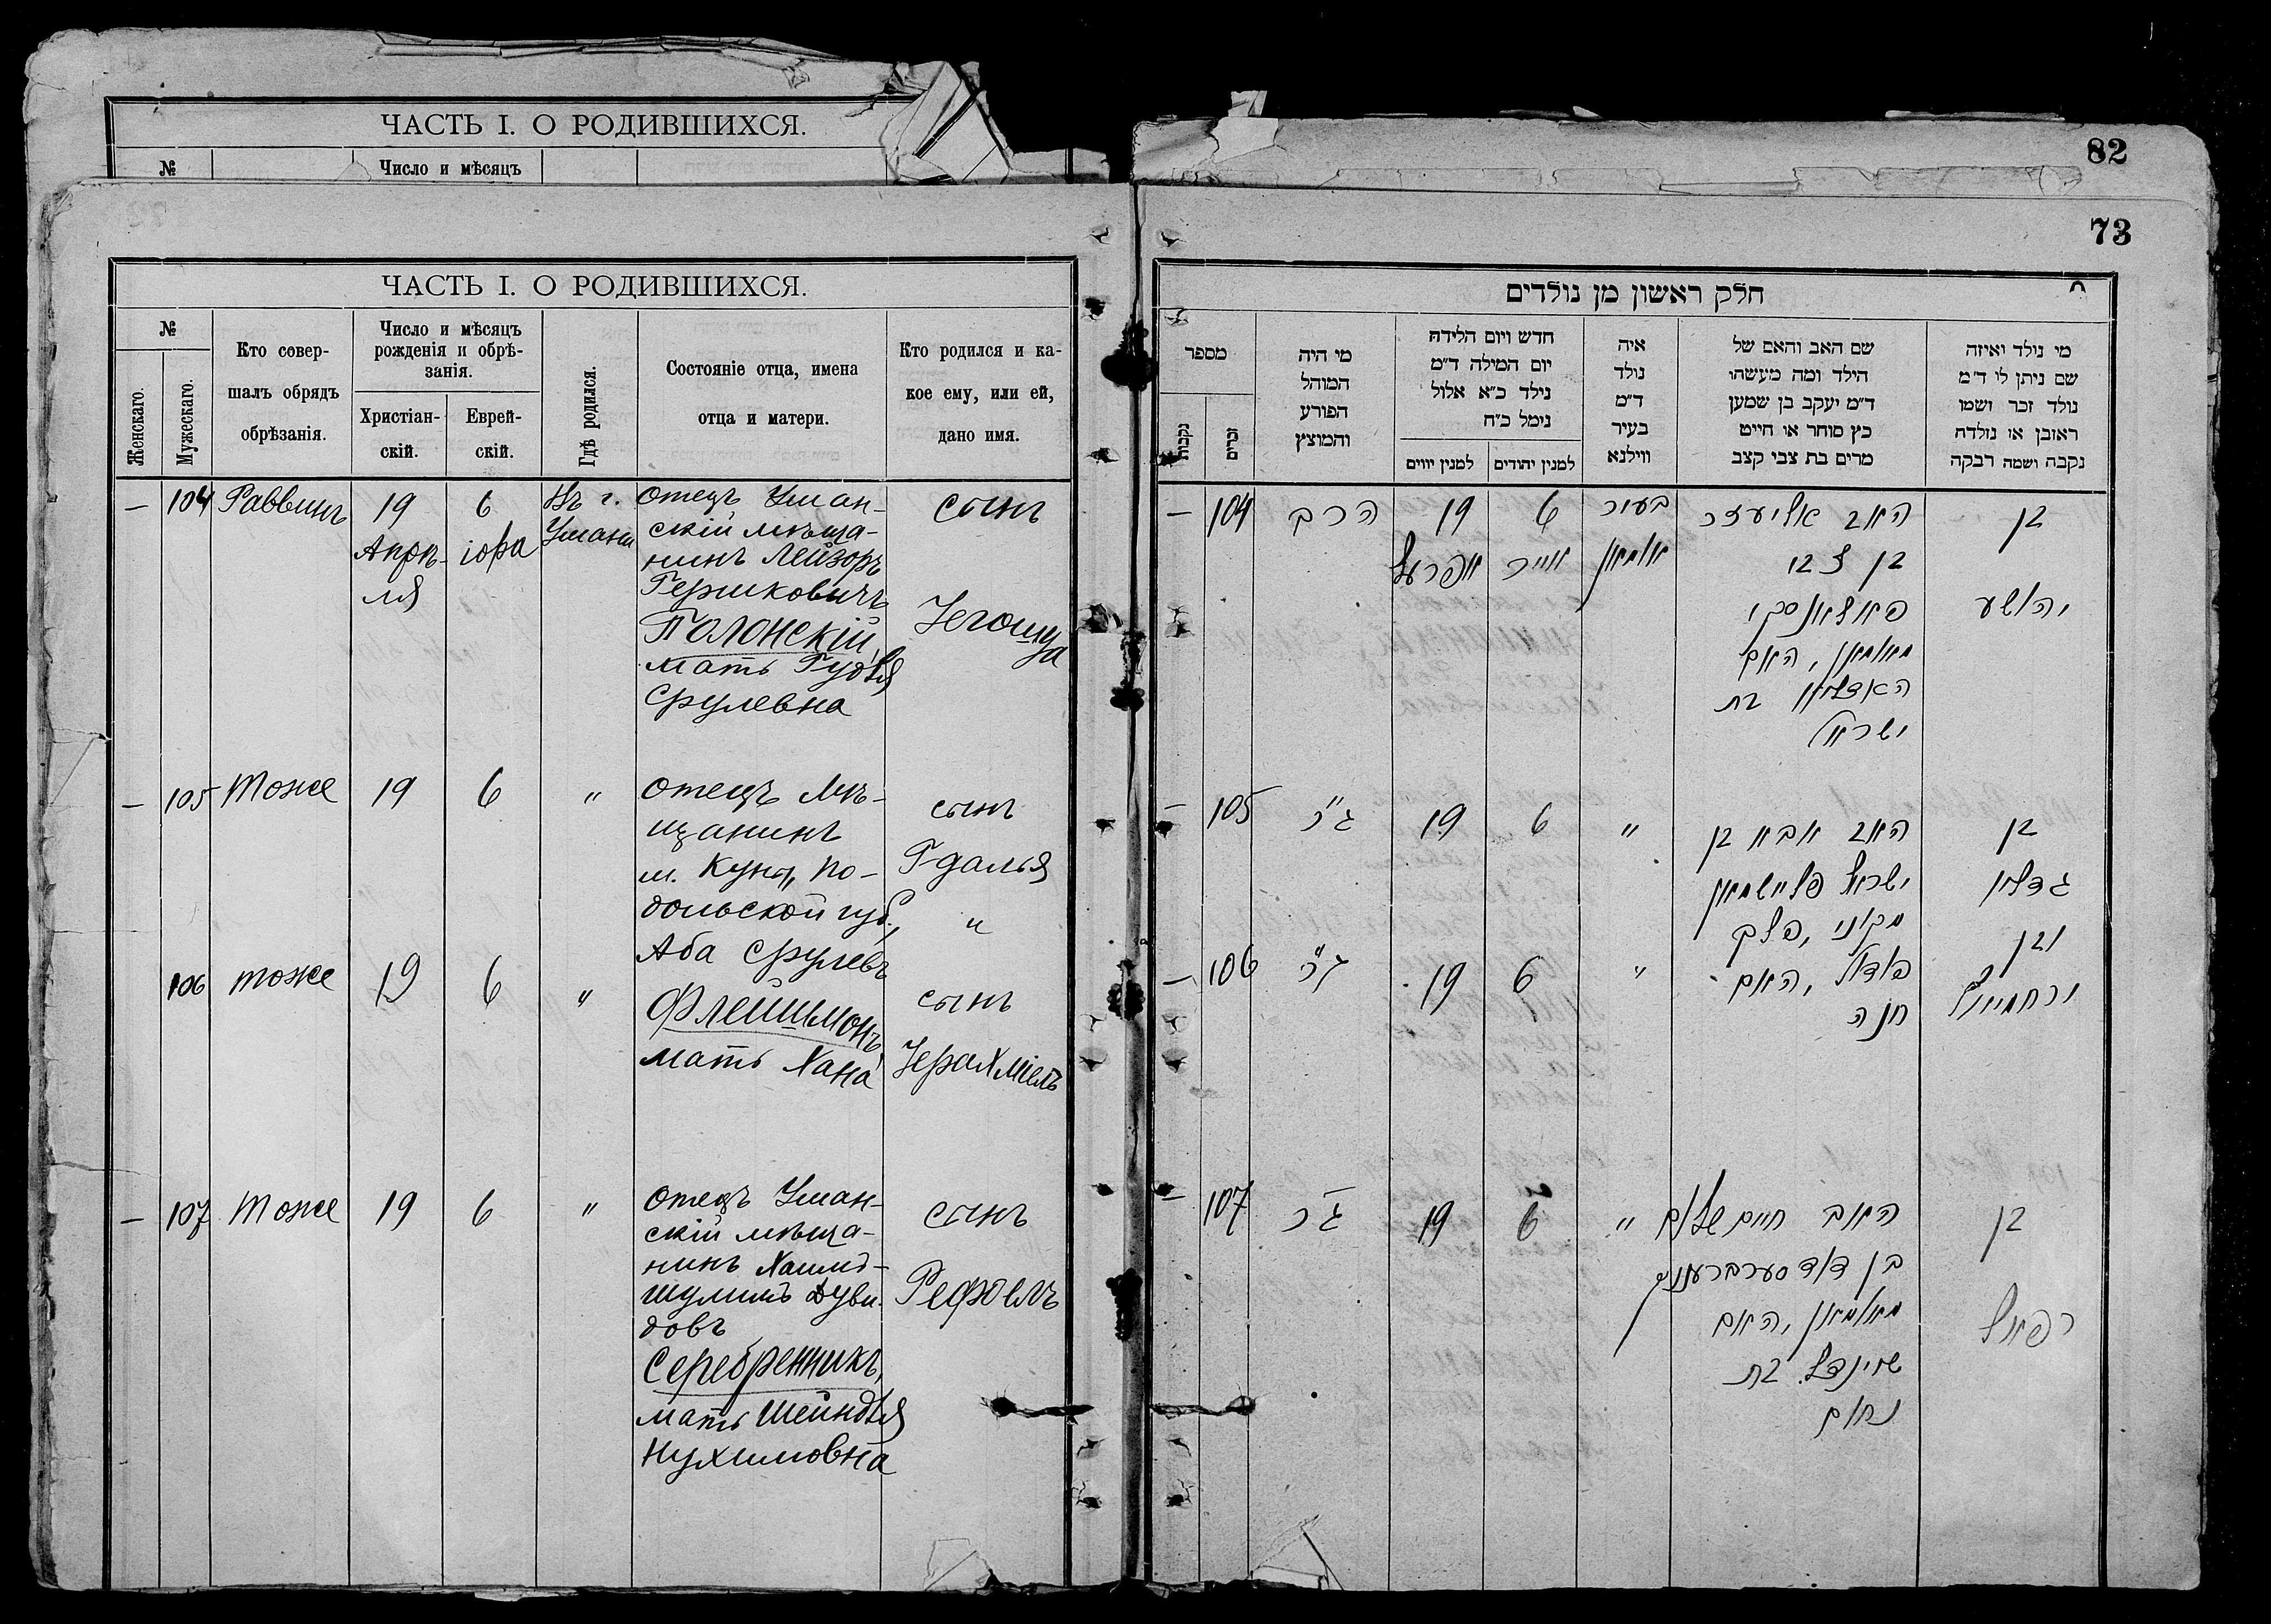 ЧАСТЬ I. О РОДИВШИХСЯ.
№
Число и мѣсяцъ
82
73
ЧАСТЬ I. О РОДИВШИХСЯ.
№
Женскаго.
Мужескаго.
Кто совер-
шалъ обрядъ
обрѣзанія.
Число и мѣсяцъ
рожденія и обрѣ-
занія.
Христіан-
скій.
Еврей-
скій.
Гдѣ родился.
Состояніе отца, имена
отца и матери.
Кто родился и ка-
кое ему, или ей,
дано имя.
— 104
Раввинъ
19
Апрѣ-
ля
6
іора
Въ г.
Умани
Отецъ Уман-
скій мѣща-
нинъ Лейзоръ
Гершковичъ
Полонскій,
мать Гудля
Срулевна
сынъ
Іегошуа
— 105
Тоже
19
6
"
Отецъ мѣ-
щанинъ
м. Куны, По-
дольской губ.,
Аба Срулевъ
Флейшманъ,
мать Хана
сынъ
Гдалья
и
106
тоже
19
6
"
сынъ
Іерахміель
— 107
Тоже
19
6
"
Отецъ Уман-
скій мѣща-
нинъ Хаимъ-
Шулимъ Дуви-
довъ
Серебренникъ,
мать Шейндля
Нухимовна
сынъ
Рефоелъ
חלק ראשון מן נולדים
מספר
נקבות
זכרים
מי היה
המוהל
הפורע
והמוצץ
חדש ויום הלידה
יום המילה ד"מ
נילד כ"א אלול
נימל כ"ח
למנין יווים
למנין יהודים
איה
נולד
ד"מ
בעיר
ווילנא
שם האב והאם של
הילד ומה מעשהו
ד"מ יעקב בן שמען
כץ סוחר או חייט
מרים בת צבי קצב
מי נולד ואיזה
שם ניתן לו ד"מ
נולד זכר ושמו
ראובן או נולדה
נקבה ושמה רבקה
— 104
הרב
19
אפרעל
6
אייר
בעיר
אומאן
האב אליעזר
בן צבי
פאלאנסקי
מאומאן, האם
האדליא בת
ישראל
בן
יהושע
— 105
19
6
"
האב אבא בן
ישראל פליישמאן
מקוני, פלך
פאדאל, האם
חנה
בן
גדליה
ובן
ירחמיאל
— 106
19
6
"
— 107
19
6
"
האב חיים שלום
בן דוד סערברעניק
מאומאן, האם
שיינדל בת
נחום
בן
רפאל